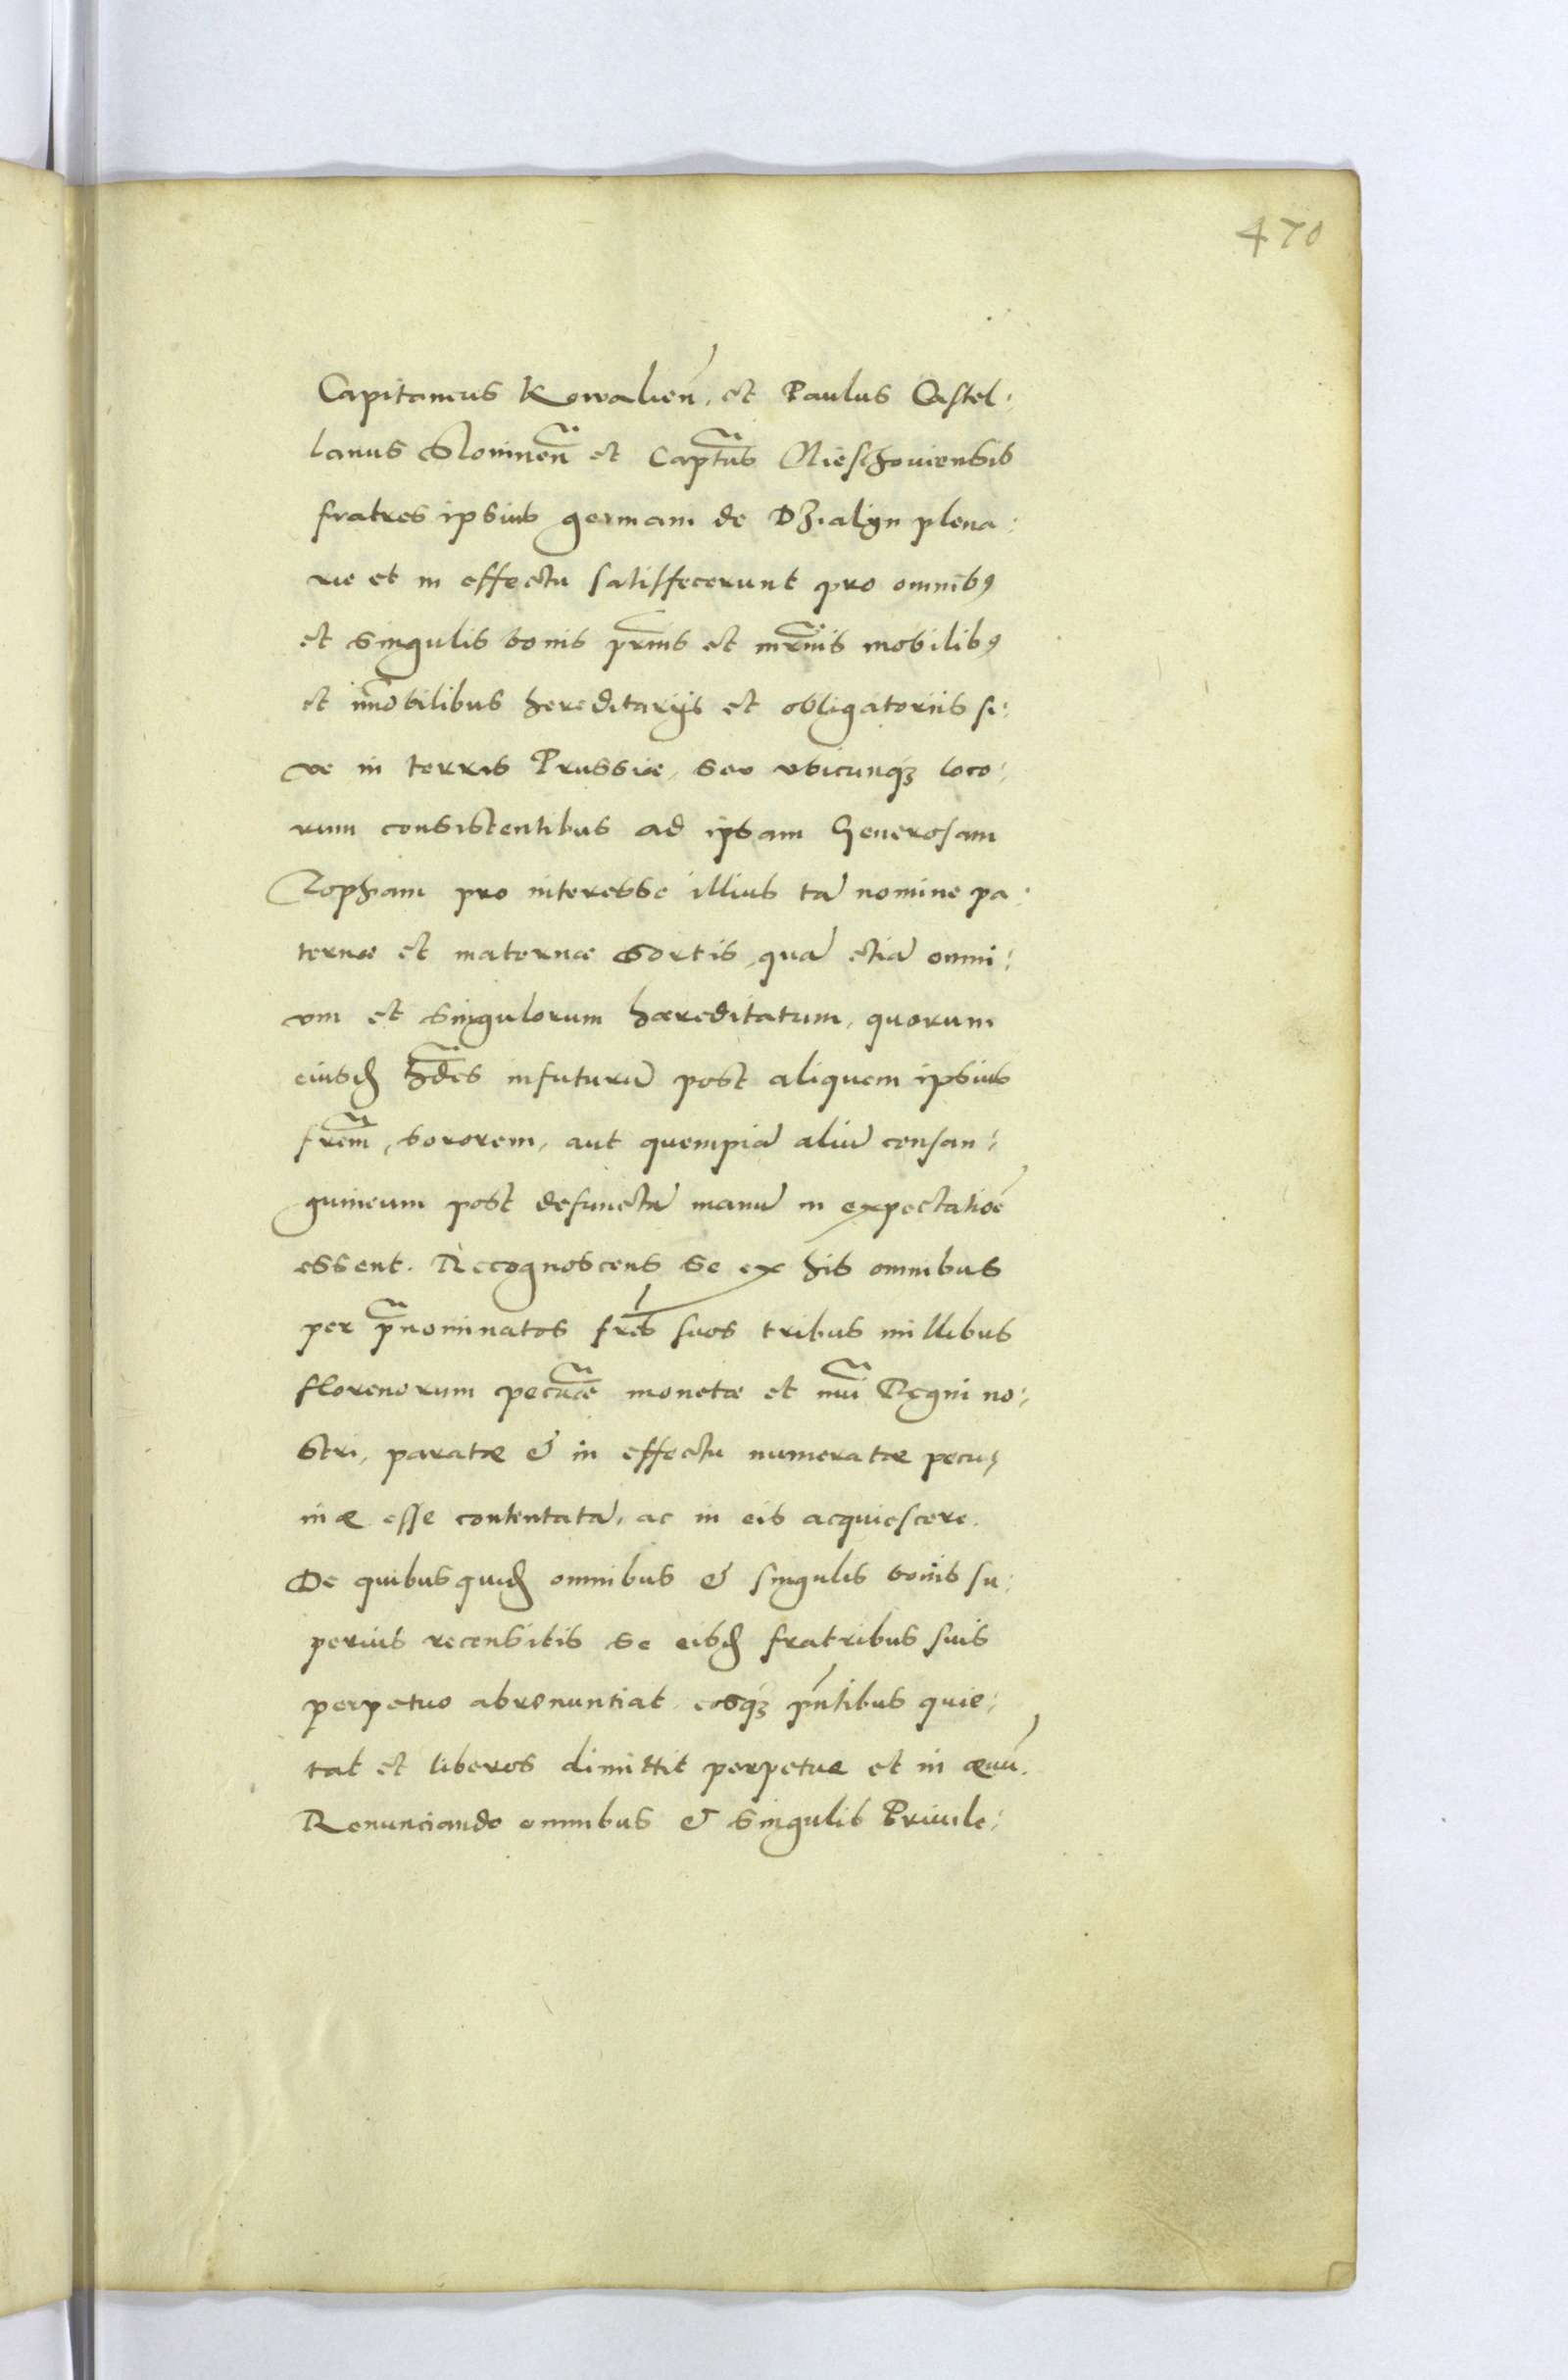 470
Capitaneus Kowalien̄. et Paulus Castel:
lanus Slonimen̄ et Captn̄us Nieschouiensis
fratres ipsius germani de Dzialyn plena:
rie et in effectu satisfecerunt pro omnibꝰ
et singulis bonis pr̄nis et mr̄nis mobilibꝰ
et im̄obilibus hereditarijs et obligatoriis si:
ve in terris Prussiæ, seu vbicunqꝫ loco:
rum consistentibus ad ipsam Generosam
Zophiam pro interesse illius tā nomine pa:
ternæ et maternæ sortis, quā etiā omni:
vm et singulorum hæreditatum, quorum
eiusđ hđes infuturū post aliquem ipsius
frēm, sororem, aut quempiā aliū consan:
guineum post defunctā manū in expectatiōē
essent. Recognoscens se ex his omnibus
per p̄nominatos frēs suos tribus millibus
florenorum pecun̄æ monetæ et nūi Regni no:
stri, paratæ & in effectu numeratæ pecu,
niæ esse contentatā, ac in eis acquiescere.
De quibusquiđ omnibus & singulis bonis su:
perius recensitis se eisđ fratribus suis
perpetuo abrenuntiat, eosqꝫ p̄ntibus quie:
tat et liberos dimittit perpetue et in æuū.
Renunciando omnibus & singulis Priuile: